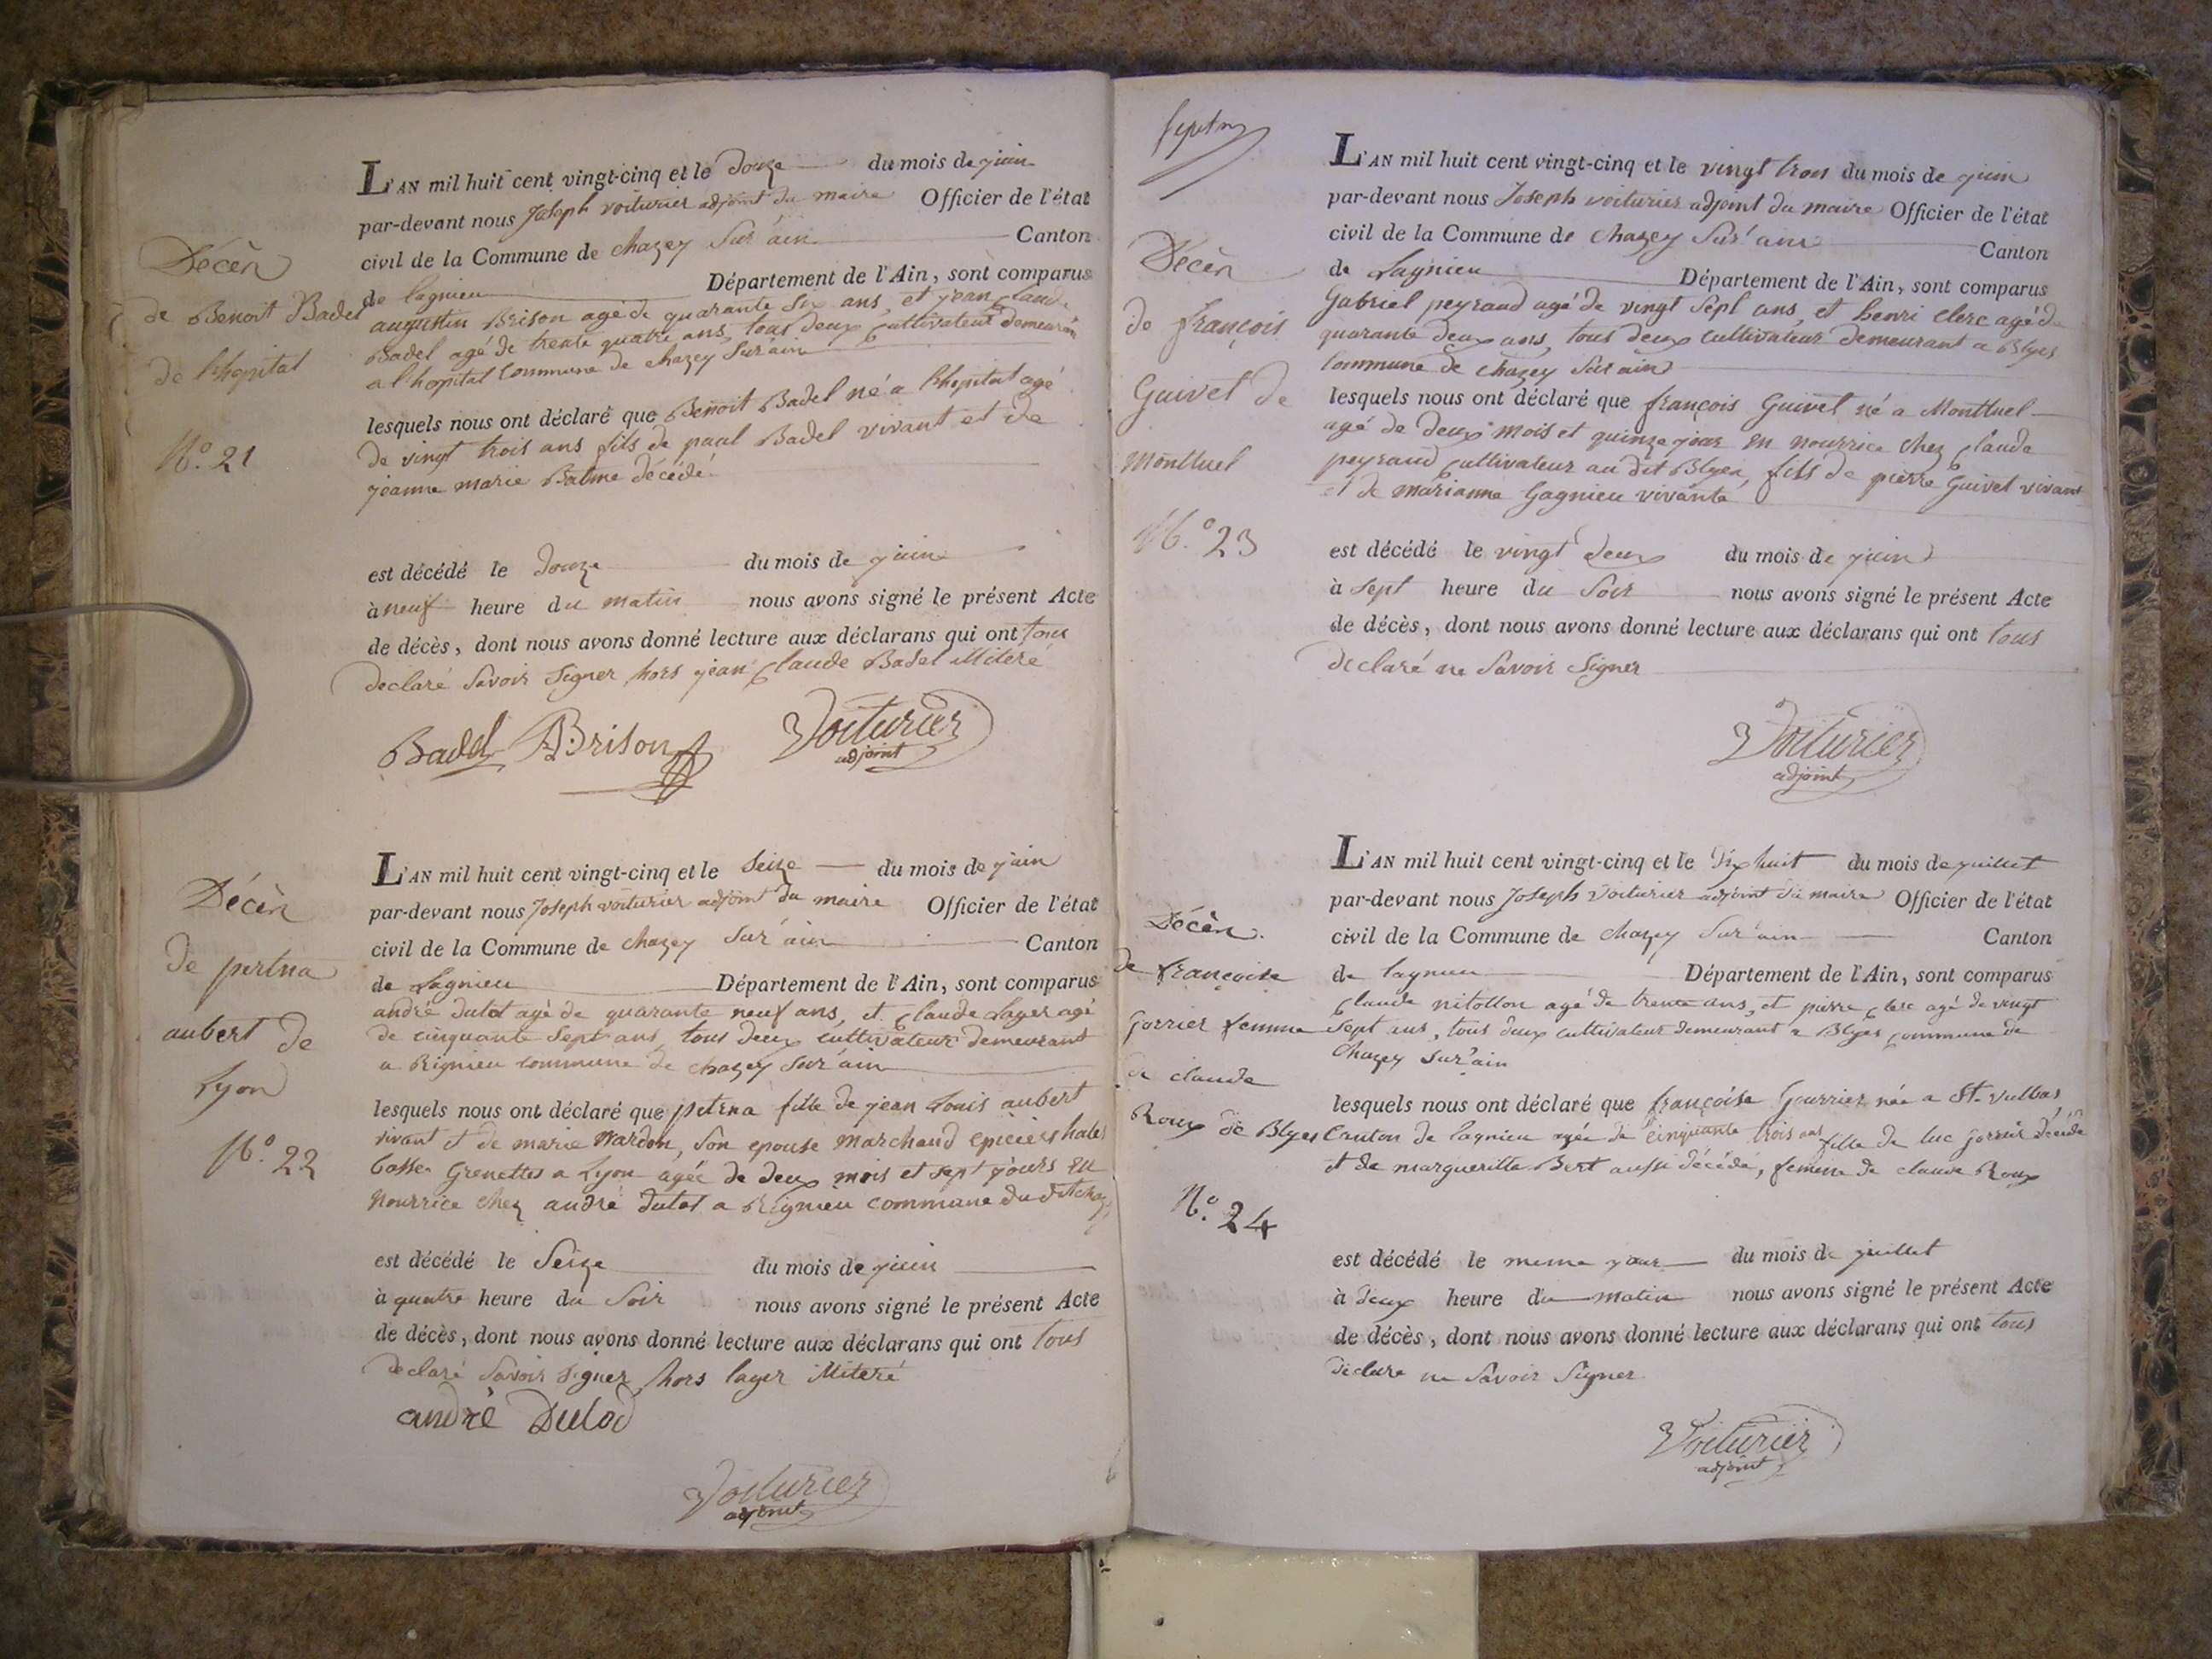 Décès
de Benoit Badel
de l'hopital
N.° 21
L'AN mil huit cent vingt-cinq et le douze du mois de juin
par-devant nous Joseph voiturier adjoint du maire Officier de l'état
civil de la Commune de chazey sur ain Canton
de lagnieu Département de l'Ain, sont comparus
augustin Brison agé de quarante six ans, et jean claude
Badel agé de trente quatre ans, tous deux cultivateur demeurant
a l'hopital commune de chazey sur ain
lesquels nous ont déclaré que Benoit Badel né a l'hopital agé
de vingt trois ans fils de paul Badel vivant et de
jeanne marie Balme décédé
est décédé le douze du mois de juin
à neuf heure du matin nous avons signé le présent Acte
de décès, dont nous avons donné lecture aux déclarans qui ont tous
declaré savoir signer hors jean claude Badel illiteré
Badel Brison Voiturier
adjoint
Décès
de pertna
aubert de
Lyon
N.° 22
L'AN mil huit cent vingt-cinq et le seize du mois de juin
par-devant nous Joseph voiturier adjoint du maire Officier de l'état
civil de la Commune de chazey sur ain Canton
de Lagnieu Département de l'Ain, sont comparus
andré dutot agé de quarante neuf ans, et claude Lager agé
de cinquante sept ans, tous deux cultivateur demeurant
a Rignieu commune de chazey sur ain
lesquels nous ont déclaré que petrna fille de jean Louis aubert
vivant et de marie Mardon, son epouse marchand epiciers hales
basse Grenettes a Lyon agée de deux mois et sept jours en
nourrice chez andré dutot a Rignieu commune du dit chazey
est décédé le seize du mois de juin
à quatre heure du soir nous avons signé le présent Acte
de décès, dont nous avons donné lecture aux déclarans qui ont tous
declaré savoir signer hors lager illiteré
andré Dulod
Voiturier
adjoint
Décès
de françois
Guivet de
Montluel
N.° 23
L'AN mil huit cent vingt-cinq et le vingt trois du mois de juin
par-devant nous Joseph voiturier adjoint du maire Officier de l'état
civil de la Commune de chazey sur ain Canton
de Lagnieu Département de l'Ain, sont comparus
Gabriel peyraud agé de vingt sept ans, et henri clerc agé de
quarante deux ans, tous deux cultivateur demeurant a Blyes
commune de chazey sur ain
lesquels nous ont déclaré que françois Guivet né a Montluel
agé de deux mois et quinze jour en nourrice chez claude
peyraud cultivateur au dit Blyes, fils de pierre Guivet vivant
et de marianne Gagnieu vivante
est décédé le vingt deux du mois de juin
à sept heure du soir nous avons signé le présent Acte
de décès, dont nous avons donné lecture aux déclarans qui ont tous
declaré ne savoir signer
Voiturier
adjoint
Décès
de françoise
Gorrier femme
de claude
Roux de Blyes
N.° 24
L'AN mil huit cent vingt-cinq et le dix huit du mois de juillet
par-devant nous Joseph voiturier adjoint du maire Officier de l'état
civil de la Commune de chazey sur ain Canton
de lagnieu Département de l'Ain, sont comparus
claude nitollon agé de trente ans, et pierre clerc agé de vingt
sept ans, tous deux cultivateur demeurant a Blyes commune de
chazey sur ain
lesquels nous ont déclaré que françoise Gourrier née a St. Vulbas
canton de lagnieu agée de cinquante trois ans fille de luc gorrier décédé
et de margueritte Bert aussi décédé, femme de claude Roux
est décédé le meme jour du mois de juillet
à deux heure du matin nous avons signé le présent Acte
de décès, dont nous avons donné lecture aux déclarans qui ont tous
declare ne savoir signer
Voiturier
adjoint